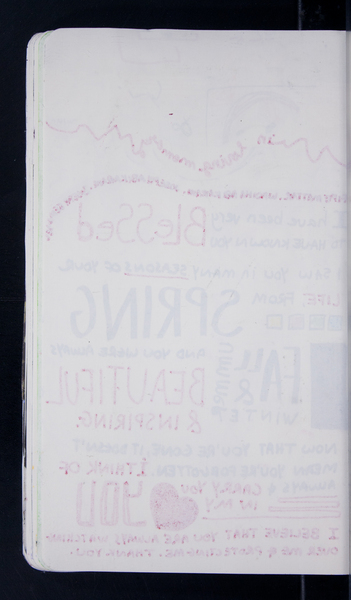 in loving memory
I have been very
BLeSSed
TO HAVE KNOWN YOU
I SAW YOU IN MANY SEASONS OF YOUR
LIFE. FROM SPRING
SUMMER
FALL &
WINTER
AND YOU WERE ALWAYS
BEAUTIFUL
& INSPIRING.
NOW THAT YOU'RE GONE, IT DOESN'T
MEAN YOU'RE FORGOTTEN. I THINK OF
YOU
ALWAYS & CARRY YOU
IN MY
I BELIEVE THAT YOU ARE ALWAYS WATCHING
OVER ME & PROTECTING ME. THANK YOU.